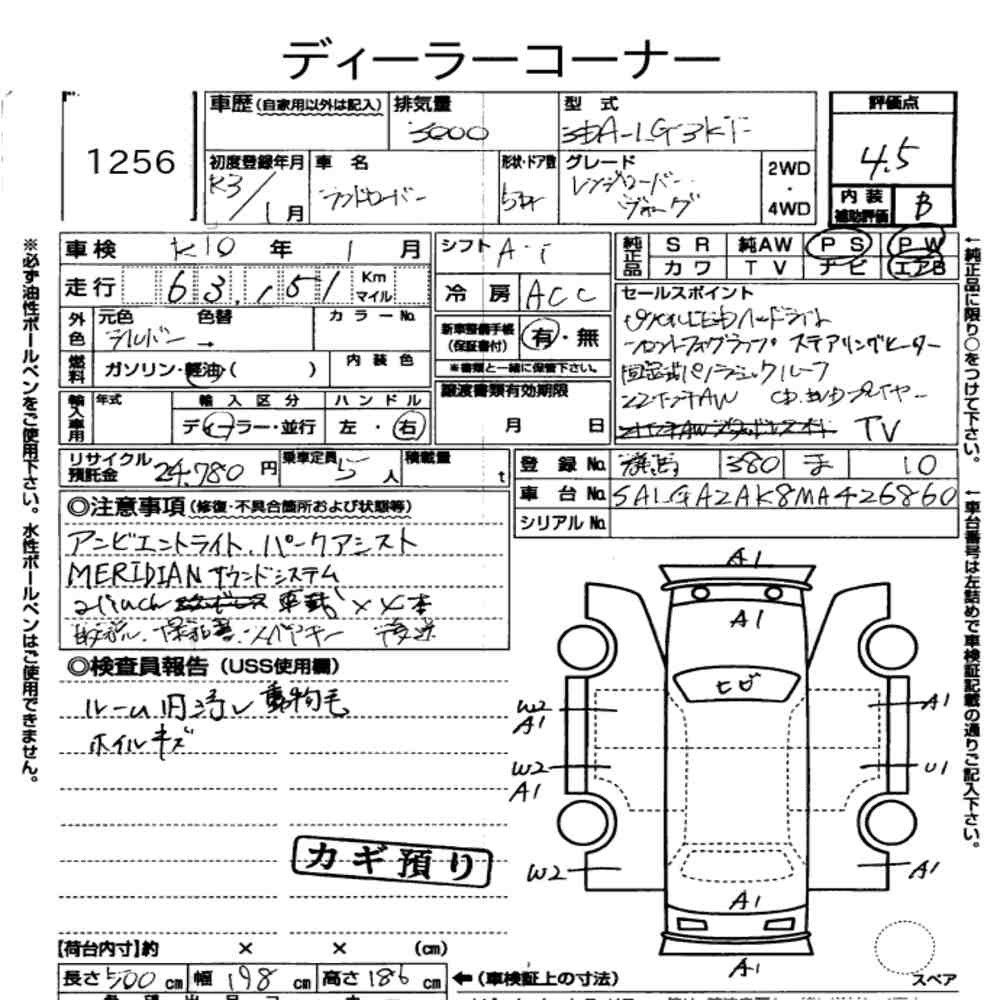 ディーラーコーナー
1256
車歴(自家用以外は記入) 排気量 3000 型式 3DA-LG3KF 評価点 4.5
初度登録年月 R3/1月 車名 ランドローバー 形状・ドア数 5DR グレード レンジローバー ヴォーグ 2WD・4WD 内装補助評価 B
車検 R10年 1月 シフト A-T 純正品 SR 純AW PS PW
カワ TV ナビ エアB
走行 63,151 Km マイル 冷房 ACC
外色 元色 シルバー → 色替 カラーNo. 新車整備手帳(保証書付) 有・無
※書類と一緒に保管下さい。
燃料 ガソリン・軽油・( ) 内装色
輸入車用 年式 輸入区分 ディーラー・並行 ハンドル 左・右 譲渡書類有効期限 月 日
セールスポイント
ピクセルLEDヘッドライト
ステアリングヒーター
固定式パノラミックルーフ
22インチAW CD.DVDプレイヤー
TV
リサイクル預託金 24,780円 乗車定員 5人 積載量 t
登録No. 群馬 380 ま 10
車台No. SALGA2AK8MA426860
シリアルNo.
◎注意事項(修復・不具合箇所および状態等)
アンビエントライト、パークアシスト
MERIDIANサウンドシステム
21inch 車載 × 4本
取説、保証書、スペアキー 後送
◎検査員報告(USS使用欄)
ルーム内汚レ 動物毛
ホイルキズ
カギ預り
A1
A1
ヒビ
W2
A1
A1
W2
A1
U1
W2
A1
A1
A1
スペア
【荷台内寸】約 × × (cm)
長さ 500cm 幅 198cm 高さ 186cm ←(車検証上の寸法)
※必ず油性ボールペンをご使用下さい。水性ボールペンはご使用できません。
←純正品に限り○をつけて下さい。
←車台番号は左詰めで車検証記載の通りご記入下さい。